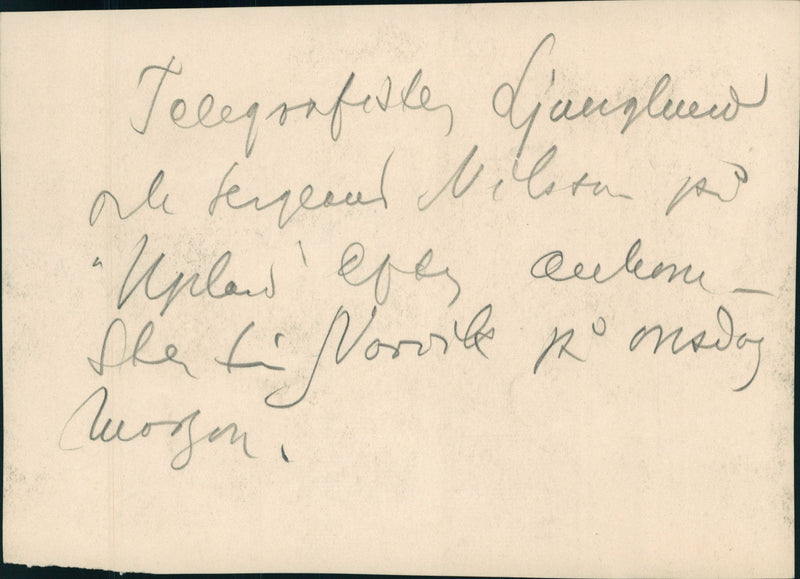 Telegrafisten Ljunglund
och sergeant Nilsson på
"Upland" efter ankom-
sten till Narvik på onsdag
morgon.